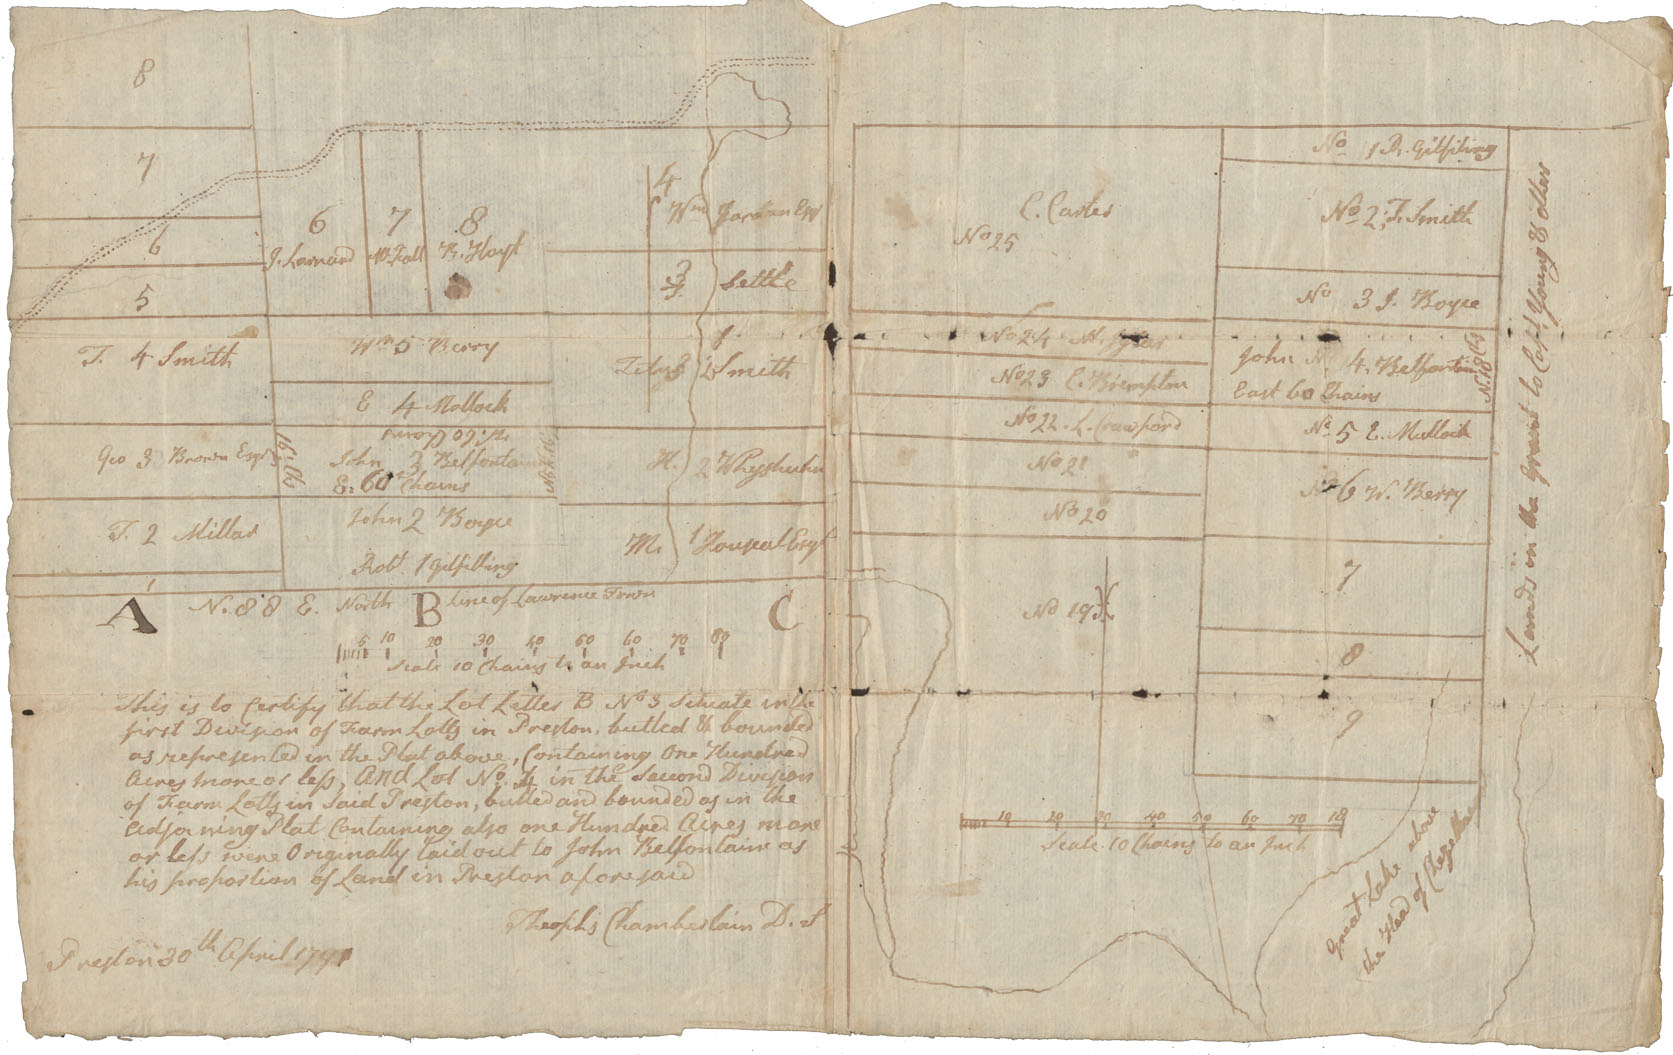 8
7
6
5
T. 4 Smith
Geo 3 Brown Esqr
T. 2 Millar
1
6
J. Larnard
7
8
R. Hoyt
Wm 5 Berry
E 4 Mollock
John 3 Belfontain
E. 60 Chains
John 2 Boyce
Robt 1 Gilfilling
4
Wm
3
Settle
Titus Smith
H. 2
M. 1 Houseal Esqr
A
N. 88 E. North
B
Line of Lawrence Town
C
5 10 20 30 40 50 60 70 80
Scale 10 Chains to an Inch
This is to Certify that the Lot Letter B No 3 Situate in the
first Division of Farm Lotts in Preston, butted & bounded
as represented in the Plat above, Containing One Hundred
Acres more or less, And Lot No. 4 in the Second Division
of Farm Lotts in Said Preston, butted and bounded as in the
adjoining Plat Containing also one Hundred Acres more
or less were Originally laid out to John Belfontaine as
his proportion of Land in Preston aforesaid
Theophs Chamberlain D. S
Preston 30th April 1791
C. Carter
No 25
No 24
No 23 C. Brempton
No 22. L. Crawford
No 21
No 20
No 19
No 1 R. Gilfiling
No 2, T. Smith
No 3 J. Boyce
John No 4, Belfontain
East 60 Chains
No 5 E. Mullock
No 6 W. Berry
7
8
9
Lands in the Grant to Capt. Young & other
10 20 30 40 50 60 70 80
Scale 10 Chains to an Inch
Great Lake above
the Head of